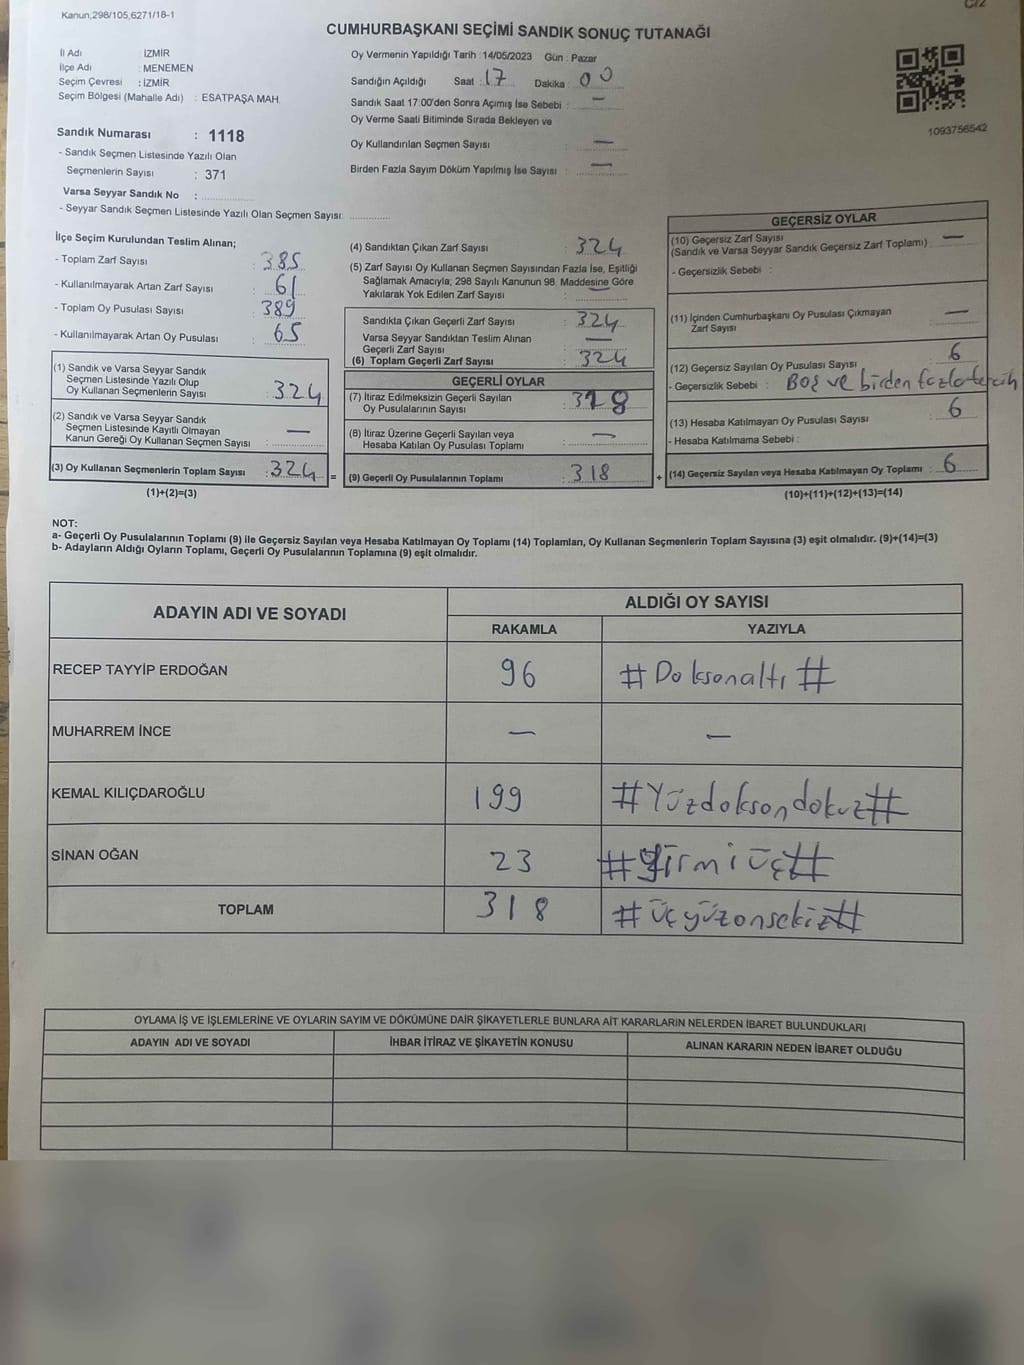 Kanun,298/105,6271/18-1
C/2
CUMHURBAŞKANI SEÇİMİ SANDIK SONUÇ TUTANAĞI
İl Adı : İZMİR
İlçe Adı : MENEMEN
Seçim Çevresi : İZMİR
Seçim Bölgesi (Mahalle Adı) : ESATPAŞA MAH.
Sandık Numarası : 1118
- Sandık Seçmen Listesinde Yazılı Olan
Seçmenlerin Sayısı : 371
Varsa Seyyar Sandık No :
- Seyyar Sandık Seçmen Listesinde Yazılı Olan Seçmen Sayısı:
Oy Vermenin Yapıldığı Tarih : 14/05/2023 Gün : Pazar
Sandığın Açıldığı Saat : 17 Dakika : 00
Sandık Saat 17:00'den Sonra Açımış İse Sebebi : —
Oy Verme Saati Bitiminde Sırada Bekleyen ve
Oy Kullandırılan Seçmen Sayısı : —
Birden Fazla Sayım Döküm Yapılmış İse Sayısı : —
1093756542
İlçe Seçim Kurulundan Teslim Alınan;
- Toplam Zarf Sayısı : 385
- Kullanılmayarak Artan Zarf Sayısı : 61
- Toplam Oy Pusulası Sayısı : 389
- Kullanılmayarak Artan Oy Pusulası : 65
(1) Sandık ve Varsa Seyyar Sandık
Seçmen Listesinde Yazılı Olup
Oy Kullanan Seçmenlerin Sayısı : 324
(2) Sandık ve Varsa Seyyar Sandık
Seçmen Listesinde Kayıtlı Olmayan
Kanun Gereği Oy Kullanan Seçmen Sayısı : —
(3) Oy Kullanan Seçmenlerin Toplam Sayısı : 324 =
(1)+(2)=(3)
(4) Sandıktan Çıkan Zarf Sayısı : 324
(5) Zarf Sayısı Oy Kullanan Seçmen Sayısından Fazla İse, Eşitliği
Sağlamak Amacıyla, 298 Sayılı Kanunun 98. Maddesine Göre
Yakılarak Yok Edilen Zarf Sayısı : —
Sandıkta Çıkan Geçerli Zarf Sayısı : 324
Varsa Seyyar Sandıktan Teslim Alınan
Geçerli Zarf Sayısı : —
(6) Toplam Geçerli Zarf Sayısı : 324
GEÇERLİ OYLAR
(7) İtiraz Edilmeksizin Geçerli Sayılan
Oy Pusulalarının Sayısı : 318
(8) İtiraz Üzerine Geçerli Sayılan veya
Hesaba Katılan Oy Pusulası Toplamı : —
(9) Geçerli Oy Pusulalarının Toplamı : 318 +
GEÇERSİZ OYLAR
(10) Geçersiz Zarf Sayısı : —
(Sandık ve Varsa Seyyar Sandık Geçersiz Zarf Toplamı)
- Geçersizlik Sebebi :
(11) İçinden Cumhurbaşkanı Oy Pusulası Çıkmayan
Zarf Sayısı : —
(12) Geçersiz Sayılan Oy Pusulası Sayısı : 6
- Geçersizlik Sebebi : Boş ve birden fazla tercih
(13) Hesaba Katılmayan Oy Pusulası Sayısı : 6
- Hesaba Katılmama Sebebi :
(14) Geçersiz Sayılan veya Hesaba Katılmayan Oy Toplamı : 6
(10)+(11)+(12)+(13)=(14)
NOT:
a- Geçerli Oy Pusulalarının Toplamı (9) ile Geçersiz Sayılan veya Hesaba Katılmayan Oy Toplamı (14) Toplamları, Oy Kullanan Seçmenlerin Toplam Sayısına (3) eşit olmalıdır. (9)+(14)=(3)
b- Adayların Aldığı Oyların Toplamı, Geçerli Oy Pusulalarının Toplamına (9) eşit olmalıdır.
ADAYIN ADI VE SOYADI ALDIĞI OY SAYISI
RAKAMLA YAZIYLA
RECEP TAYYİP ERDOĞAN 96 #Doksanaltı#
MUHARREM İNCE — —
KEMAL KILIÇDAROĞLU 199 #Yüzdoksandokuz#
SİNAN OĞAN 23 #Yirmiüç#
TOPLAM 318 #üçyüzonsekiz#
OYLAMA İŞ VE İŞLEMLERİNE VE OYLARIN SAYIM VE DÖKÜMÜNE DAİR ŞİKAYETLERLE BUNLARA AİT KARARLARIN NELERDEN İBARET BULUNDUKLARI
ADAYIN ADI VE SOYADI İHBAR İTİRAZ VE ŞİKAYETİN KONUSU ALINAN KARARIN NEDEN İBARET OLDUĞU